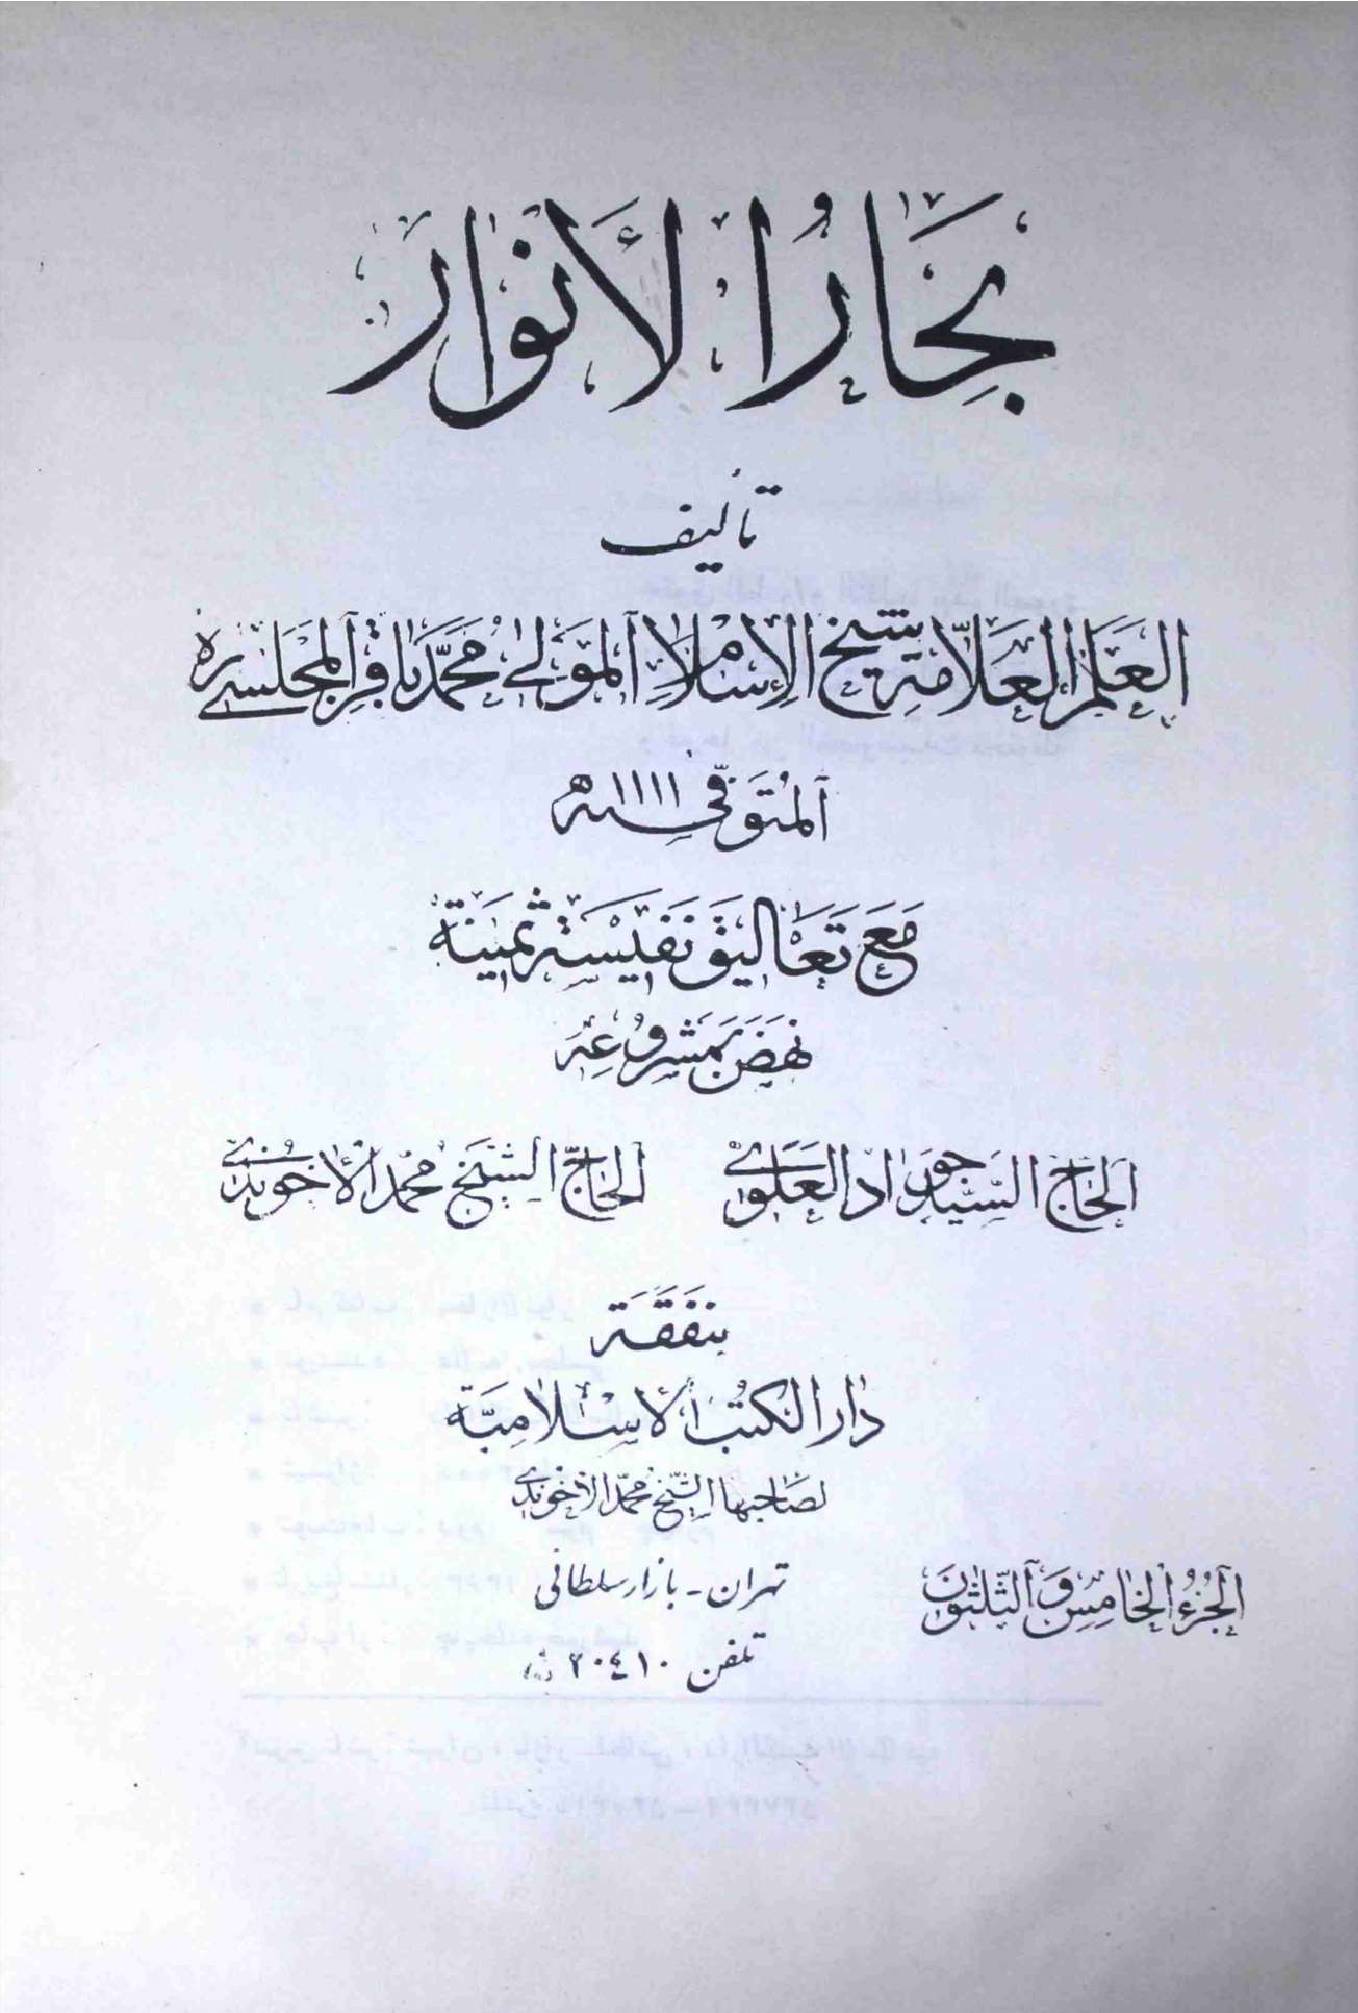 بِحَارُ الأَنْوَار
تأليف
العَلَم العَلّامَة شيخ الإسلام المَولىٰ مُحَمَّد بَاقِر المَجلسي ره
المُتَوفّىٰ سنه ١١١١ هـ
مَعَ تَعَاليق نَفيسَة ثمينَة
نهَضَ بمَشروُعِه
الحاجّ السَّيد جَواد العَلَوي الحاجّ الشّيخ محمّد الآخوندي
بنفَقَة
دَار الكتُب الإسلاميّة
لصَاحبها الشّيخ محمّد الآخوندي
تهران - بازار سلطانى
الجُزءُ الخامِس وَ الثّلثون
تلفن ٢٠٤١٠